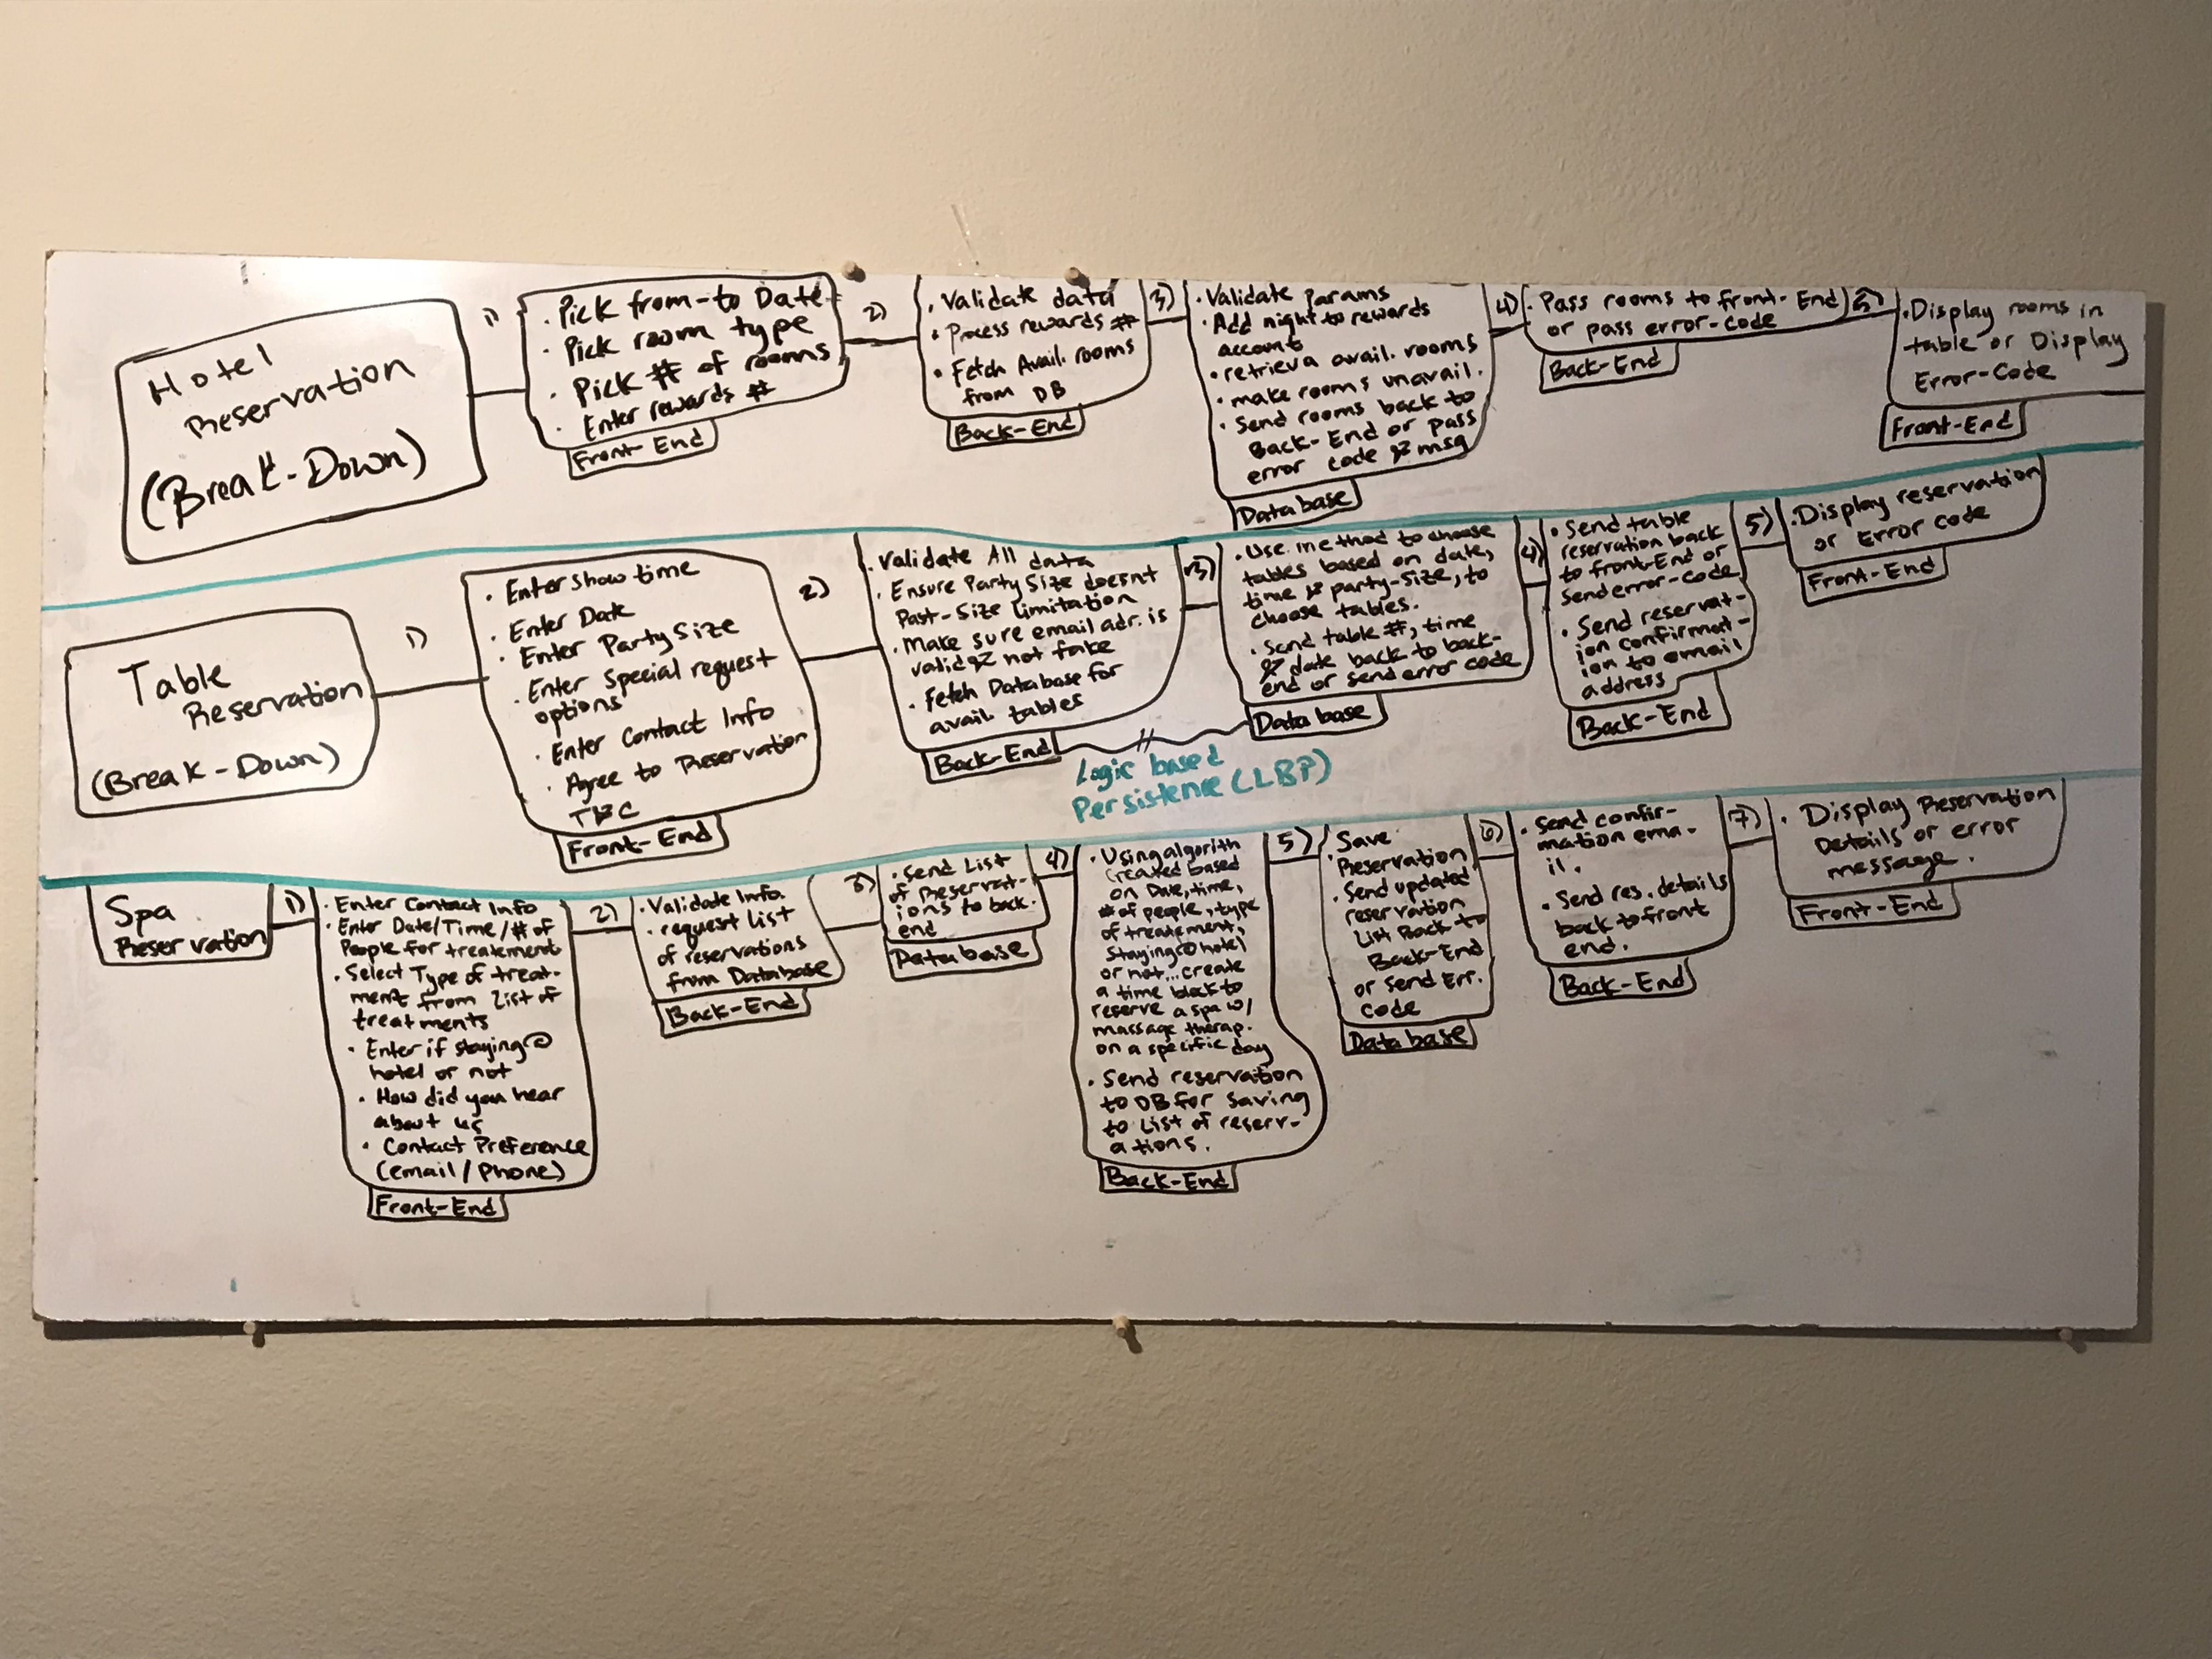 Hotel
Reservation
(Break-Down)
1)
· Pick from-to Date
· Pick room type
· Pick # of rooms
· Enter rewards #
Front-End
2)
· Validate data
· Process rewards #
· Fetch Avail. rooms
from DB
Back-End
3)
· Validate params
· Add night to rewards
account
· retrieva avail. rooms
· make rooms unavail.
· Send rooms back to
Back-End or pass
error code & msg
Database
4)
· Pass rooms to front-End
or pass error-code
Back-End
5)
· Display rooms in
table or Display
Error-Code
Front-End
Table
Reservation
(Break-Down)
1)
· Enter show time
· Enter Date
· Enter Party Size
· Enter Special request
options
· Enter Contact Info
· Agree to Reservation
T&C
Front-End
2)
· Validate All data
· Ensure Party Size doesnt
Past-Size limitation
· Make sure email adr. is
valid & not fake
· Fetch Database for
avail. tables
Back-End
3)
· Use method to choose
tables based on date,
time & party-size, to
choose tables.
· Send table #, time
& date back to back-
end or send error code
Database
Logic based
Persistence (LBP)
4)
· Send table
reservation back
to front-End or
send error-code
· Send reservat-
ion confirmat-
ion to email
address
Back-End
5)
· Display reservation
or Error code
Front-End
Spa
Reservation
1)
· Enter Contact Info
· Enter Date/Time/# of
People for treatement
· Select Type of treat-
ment from List of
treatments
· Enter if staying@
hotel or not
· How did you hear
about us
· Contact Preference
(email/Phone)
Front-End
2)
· Validate Info.
· request list
of reservations
from Database
Back-End
3)
· Send List
of Reservat-
ions to back-
end
Database
4)
· Using algorith
created based
on Date, time,
# of people, type
of treatement,
Staying@hotel
or not... create
a time block to
reserve a spa w/
massage therap.
on a specific day
· Send reservation
to DB for saving
to List of reserv-
ations.
Back-End
5)
· Save
Reservation
· Send updated
reservation
List Back to
Back-End
or send Err.
code
Database
6)
· Send confir-
mation ema-
il.
· Send res. details
back to front
end.
Back-End
7)
· Display Reservation
Details or error
message.
Front-End